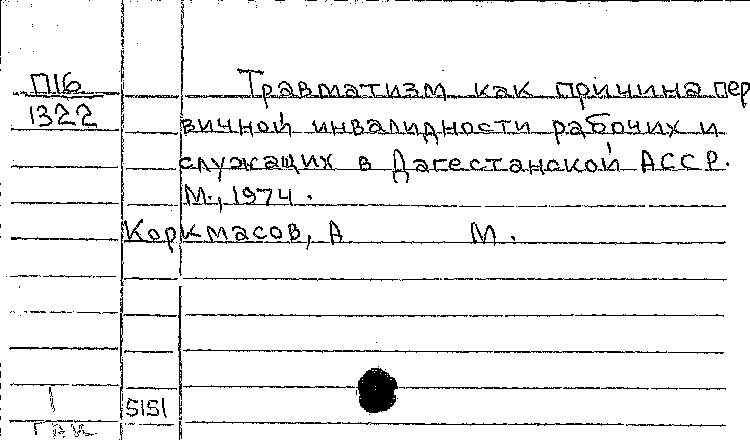 П16
1322
Травматизм как причина пер
вичной инвалидности рабочих и
служащих в Дагестанской АССР.
М., 1974.
Коркмасов, А М.
5151